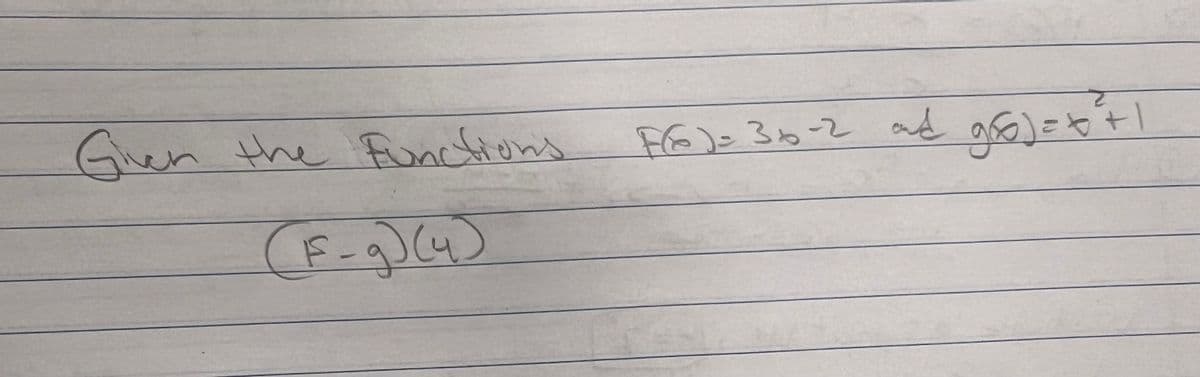 Given the Functions F(x) = 3x-2 and g(x) = x²+1
(F-g)(4)